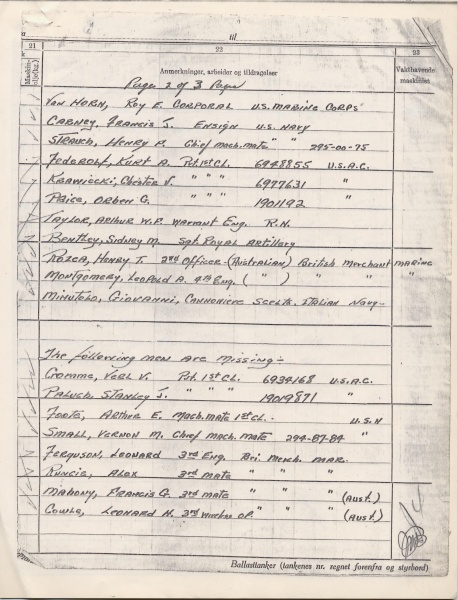 21 22 23
Maskin-
Anmerkninger, arbeider og tildragelser
Vakthavende
maskinist
Page 2 of 3 Pages
Van Horn, Roy E. Corporal U.S. Marine Corps
Carney, Francis J. Ensign U.S. Navy
Strauch, Henry P. Chief mach. mate " " 295-00-75
Federoff, Kurt A. Pvt 1st Cl. 6948855 U.S.A.C.
Krawiecki, Chester V. " " " 6977631 "
Price, Orben G. " " " 1901192
Taylor, Arthur W.P. Warrant Eng. R.N.
Bentley, Sidney M. Sgt. Royal Artillery
Rozea, Henry T. 2nd Officer - (Australian) British Merchant Marine
Montgomery, Leopold A. 4th Eng. ( " ) " " "
Minutolo, Giovanni, Cannoniere Scelto, Italian Navy -
The following men are missing -
Cromme, Verl V. Pvt. 1st Cl. 6934168 U.S.A.C.
Paluch, Stanley J. " " " 19019871 "
Foote, Arthur E. Mach. mate 1st Cl. U.S.N
Small, Vernon M. Chief mach. mate 294-87-84 "
Ferguson, Leonard 3rd Eng. Bri. Merch. Mar.
Runcie, Alex 3rd mate " " "
Mahony, Francis G. 3rd mate " " " (Aust.)
Cowle, Leonard H. 3rd Wireless Op. " " (Aust.)
Ballasttanker (tankenes nr. regnet forenfra og styrbord)